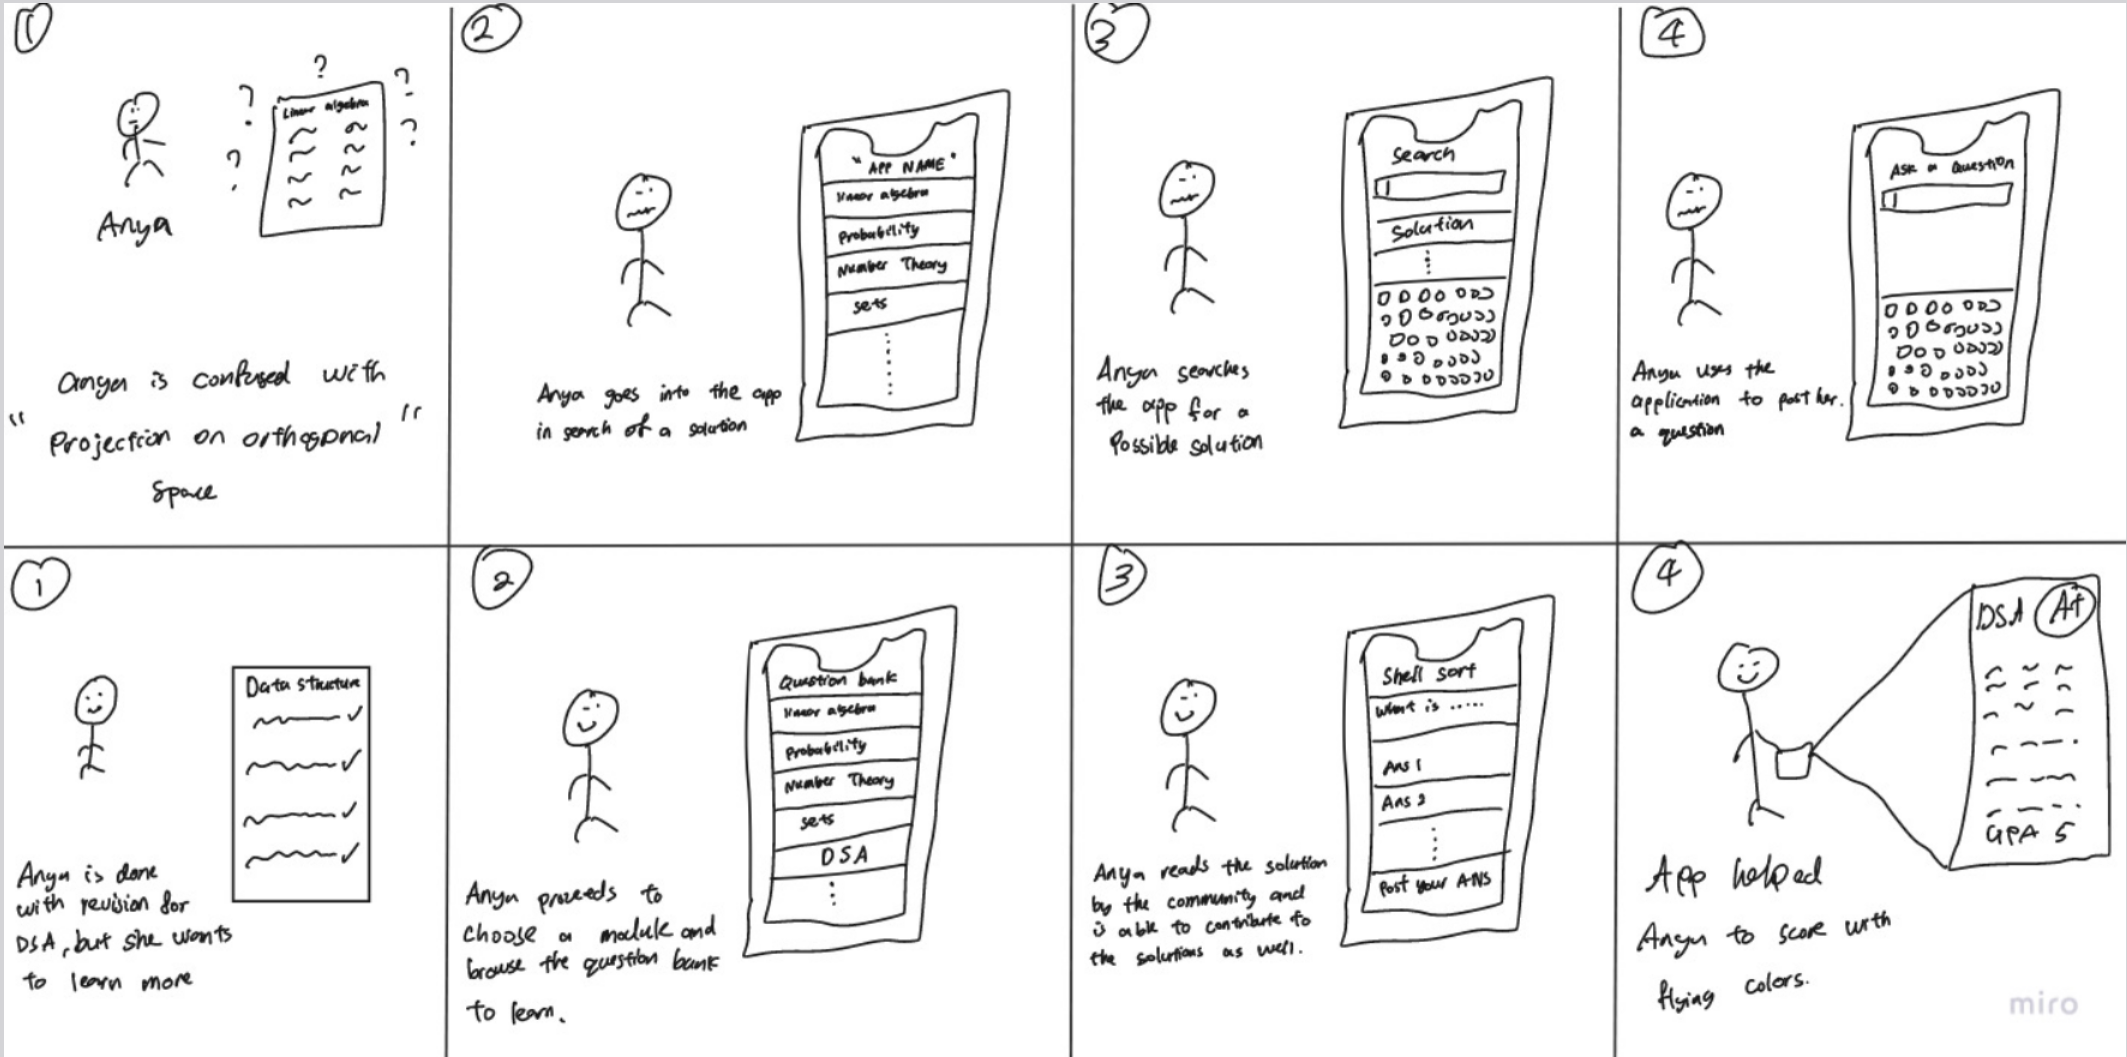 1
?
?
?
?
?
?
Linear algebra
Anya
Anya is confused with
" Projection on orthogonal "
Space
2
" APP NAME "
linear algebra
Probability
Number Theory
sets
Anya goes into the app
in search of a solution
3
Search
Solution
Anya searches
the app for a
Possible solution
4
Ask a Question
Anya uses the
application to post her.
a question
1
Data structure
Anya is done
with revision for
DSA, but she wants
to learn more
2
Question bank
linear algebra
Probability
Number Theory
sets
DSA
Anya proceeds to
choose a module and
browse the question bank
to learn.
3
Shell sort
What is .....
Ans 1
Ans 2
Post your ANS
Anya reads the solution
by the community and
is able to contribute to
the solutions as well.
4
DSA A+
GPA 5
App helped
Anya to score with
flying colors.
miro